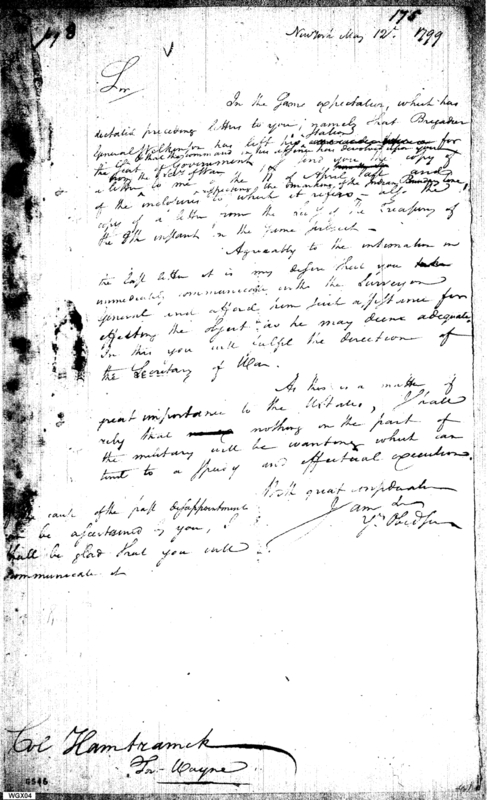 175
New York May 12th. 1799
Sir
In the same expectation, which has
dictated preceding letters to you; namely that Brigadier
General Wilkinson has left his Station for
& that the command in his absence has devolved upon you
the Seat of Government, I send you the copy of
from the Secy of War
a letter to me of the 11 of April last and
respecting the marking of the Indian Boundary line,
of the inclosures to which it refers - also the
copy of a letter from the Secy of the Treasury of
the 9th instant on the same subject -
Agreeably to the intimation in
the last letter it is my desire that you
immediately communicate with the Surveyor
General and afford him such assistance for
effecting the object as he may deem adequate.
In this you will fulfil the direction of
the Secretary of War.
As this is a matter of
great importance to the UStates, I shall
rely that nothing on the part of
the military will be wanting which can
tend to a speedy and effectual execution.
With great consideration
I am Sir
Yr Obed Ser
cause of the past disappointment
be ascertained by you, I
shall be glad that you will
communicate it
Col Hamtramck
Fort Wayne
0545
WGX04